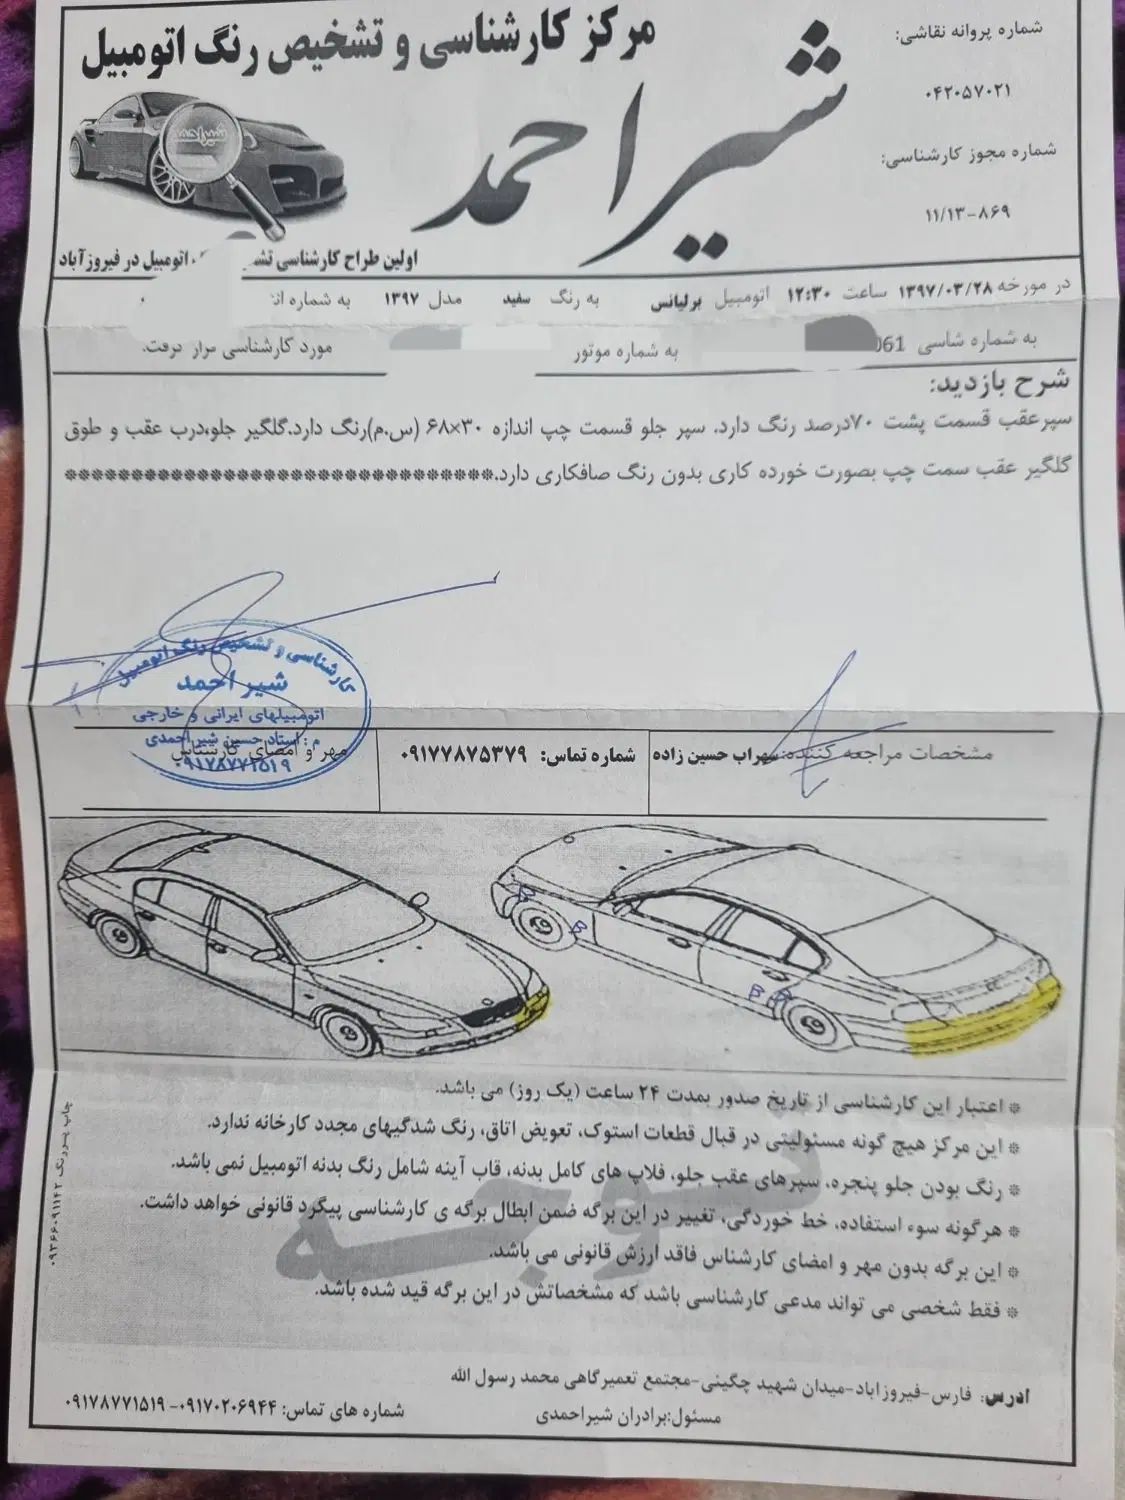 مرکز کارشناسی و تشخیص رنگ اتومبیل
شیراحمد
شماره پروانه نقاشی:
۰۴۲۰۵۷۰۲۱
شماره مجوز کارشناسی:
۱۱/۱۳-۸۶۹
شیراحمد
اولین طراح کارشناسی اتومبیل در فیروزآباد
در مورخه ۱۳۹۷/۰۳/۲۸ ساعت ۱۲:۳۰ اتومبیل برلیانس به رنگ سفید مدل ۱۳۹۷ به شماره
به شماره شاسی 061 به شماره موتور مورد کارشناسی قرار گرفت.
شرح بازدید:
سپرعقب قسمت پشت ۷۰درصد رنگ دارد. سپر جلو قسمت چپ اندازه ۳۰×۶۸ (س.م)رنگ دارد.گلگیر جلو،درب عقب و طوق
گلگیر عقب سمت چپ بصورت خورده کاری بدون رنگ صافکاری دارد.**********************************
کارشناسی و تشخیص رنگ اتومبیل
شیر احمد
اتومبیلهای ایرانی و خارجی
م : استاد حسین شیراحمدی
۰۹۱۷۸۷۷۱۵۱۹
مشخصات مراجعه کننده:سهراب حسین زاده
شماره تماس: ۰۹۱۷۷۸۷۵۳۷۹
مهر و امضای کارشناس
B
B
B
* اعتبار این کارشناسی از تاریخ صدور بمدت ۲۴ ساعت (یک روز) می باشد.
* این مرکز هیچ گونه مسئولیتی در قبال قطعات استوک، تعویض اتاق، رنگ شدگیهای مجدد کارخانه ندارد.
* رنگ بودن جلو پنجره، سپرهای عقب جلو، فلاپ های کامل بدنه، قاب آینه شامل رنگ بدنه اتومبیل نمی باشد.
* هرگونه سوء استفاده، خط خوردگی، تغییر در این برگه ضمن ابطال برگه ی کارشناسی پیگرد قانونی خواهد داشت.
* این برگه بدون مهر و امضای کارشناس فاقد ارزش قانونی می باشد.
* فقط شخصی می تواند مدعی کارشناسی باشد که مشخصاتش در این برگه قید شده باشد.
توجه
آدرس: فارس-فیروزاباد-میدان شهید چگینی-مجتمع تعمیرگاهی محمد رسول الله
مسئول:برادران شیراحمدی
شماره های تماس: ۰۹۱۷۰۲۰۶۹۴۴-۰۹۱۷۸۷۷۱۵۱۹